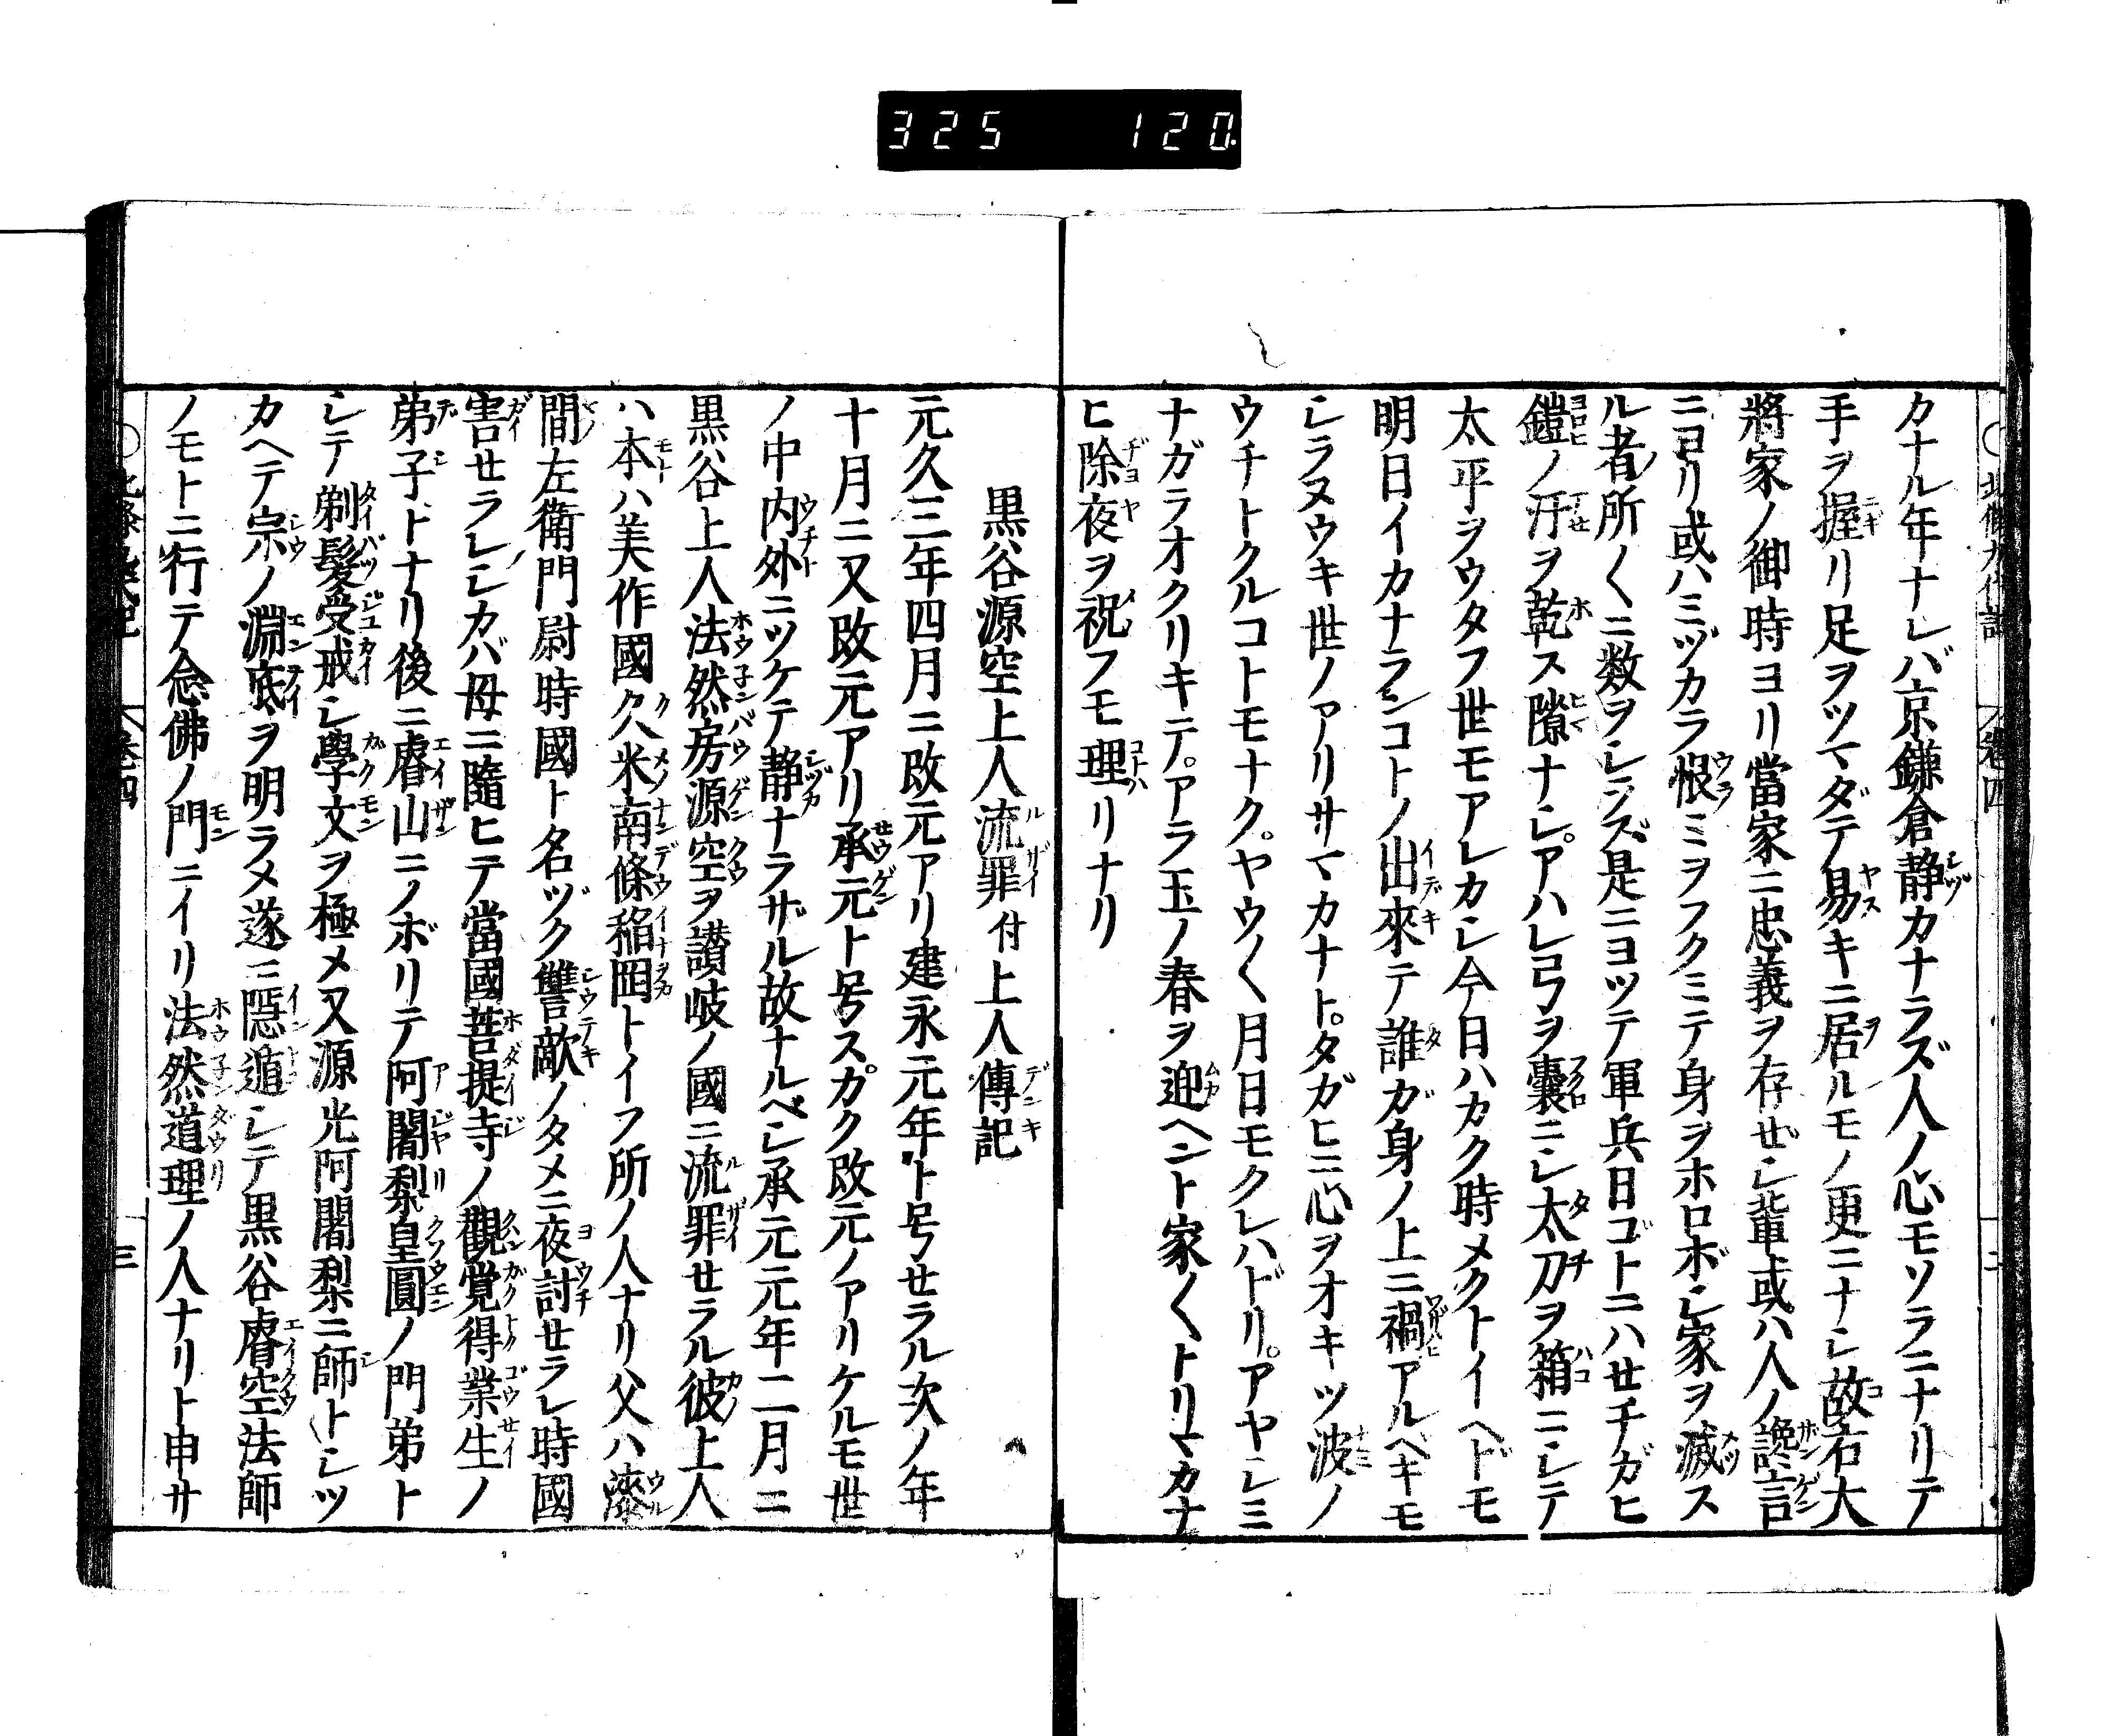 325 120
カナル年ナレバ京鎌倉静カナラズ人ノ心モソラニナリテ
手ヲ握リ足ヲツマダテ易キニ居ルモノ更ニナシ故右大
將家ノ御時ヨリ當家ニ忠義ヲ存ゼシ輩或ハ人ノ讒言
ニヨリ或ハミヅカラ恨ミヲフクミテ身ヲホロボシ家ヲ滅ス
ル者所〱ニ数ヲシラズ是ニヨツテ軍兵日ゴトニハセチガヒ
鎧ノ汗ヲ乾ス隙ナシ。アハレ弓ヲ嚢ニシ太刀ヲ箱ニシテ
太平ヲウタフ世モアレカシ今日ハカク時メクトイヘドモ
明日イカナランコトノ出來テ誰ガ身ノ上ニ禍アルベキモ
シラヌウキ世ノアリサマカナト。タガヒニ心ヲオキツ波ノ
ウチトクルコトモナク。ヤウ〱月日モクレハドリ。アヤシミ
ナガラオクリキテ。アラ玉ノ春ヲ迎ヘント家〱トリマカナ
ヒ除夜ヲ祝フモ理リナリ
黒谷源空上人流罪付上人傳記
元久三年四月ニ改元アリ建永元年ト号セラル次ノ年
十月ニ又改元アリ承元ト号スカク改元ノアリケルモ世
ノ中内外ニツケテ静ナラザル故ナルベシ承元元年二月ニ
黒谷上人法然房源空ヲ讃岐ノ國ニ流罪セラル彼上人
ハ本ハ美作國久米南條稲岡トイフ所ノ人ナリ父ハ漆
間左衛門尉時國ト名ヅク讐敵ノタメニ夜討セラレ時國
害セラレシカバ母ニ隨ヒテ當國菩提寺ノ觀覚得業生ノ
弟子トナリ後ニ睿山ニノボリテ阿闍梨皇圓ノ門弟ト
シテ剃髪受戒シ學文ヲ極メ又源光阿闍梨ニ師トシツ
カヘテ宗ノ淵底ヲ明ラメ遂ニ隠遁シテ黒谷睿空法師
ノモトニ行テ念佛ノ門ニイリ法然道理ノ人ナリト申サ